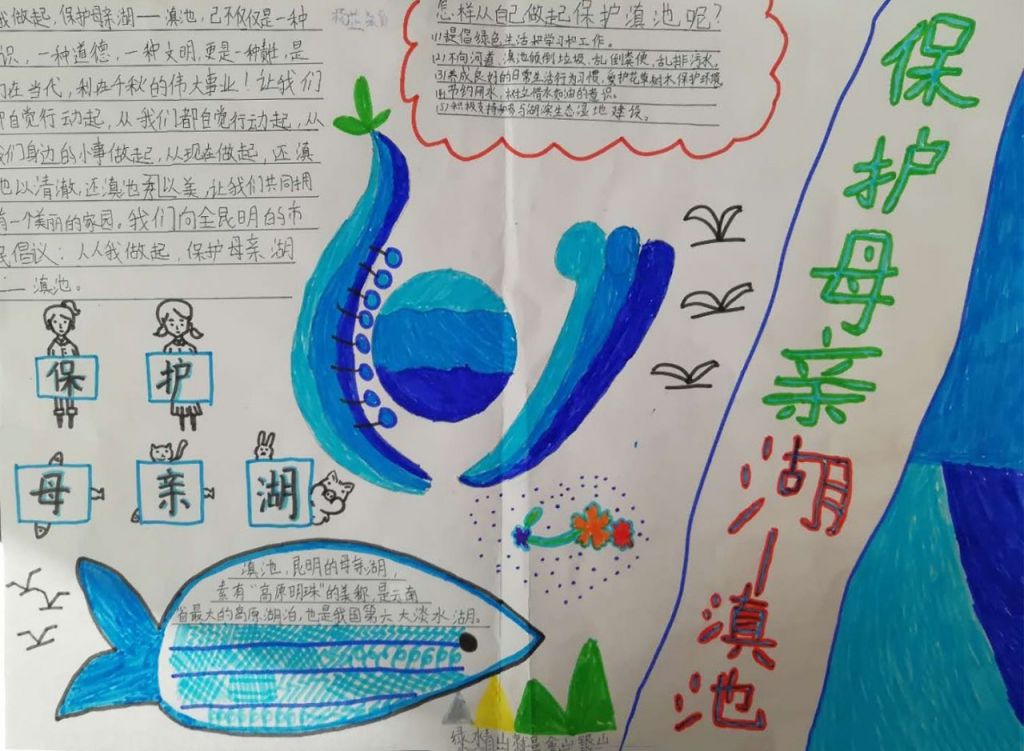 我做起,保护母亲湖——滇池,已不仅仅是一种
识,一种道德,一种文明,更是一种责任,是
功在当代,利在千秋的伟大事业!让我们
都自觉行动起,从我们都自觉行动起,从
我们身边的小事做起,从现在做起,还滇
池以清澈,还滇池秀以美,让我们共同拥
有一个美丽的家园。我们向全昆明的市
民倡议:人人我做起,保护母亲湖
——滇池。
怎样从自己做起保护滇池呢?
(1)提倡绿色生活和学习和工作。
(2)不向河道、滇池倾倒垃圾,乱倒粪便,乱排污水。
(3)养成良好的日常生活行为习惯,爱护花草树木,保护环境
(4)节约用水,树立惜水如油的意识。
(5)积极支持参与湖滨生态湿地建设。
保护母亲湖—滇池
保 护
母 亲 湖
滇池,昆明的母亲湖,
素有“高原明珠”的美称,是云南
省最大的高原湖泊,也是我国第六大淡水湖。
绿水青山就是金山银山